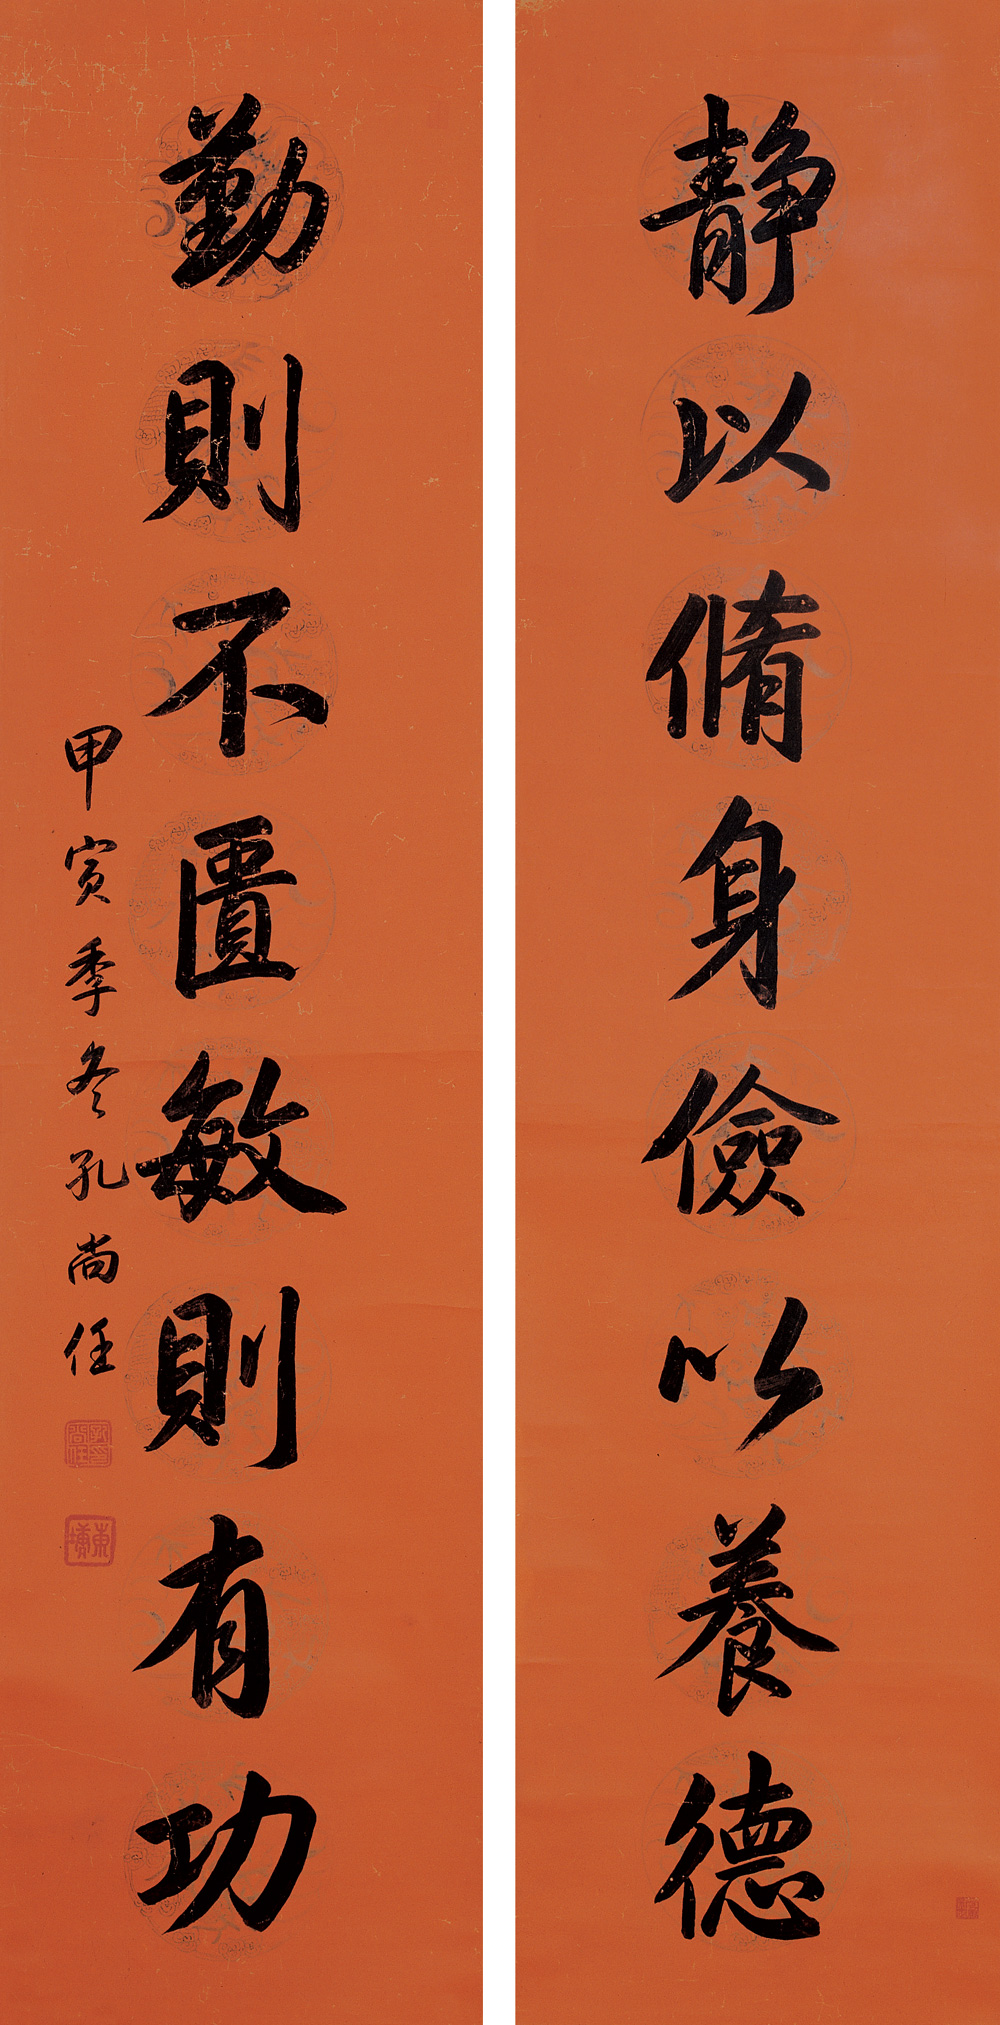 静以脩身儉以養德
勤則不匱敏則有功
甲寅季冬孔尚任
孔尚任印
東塘